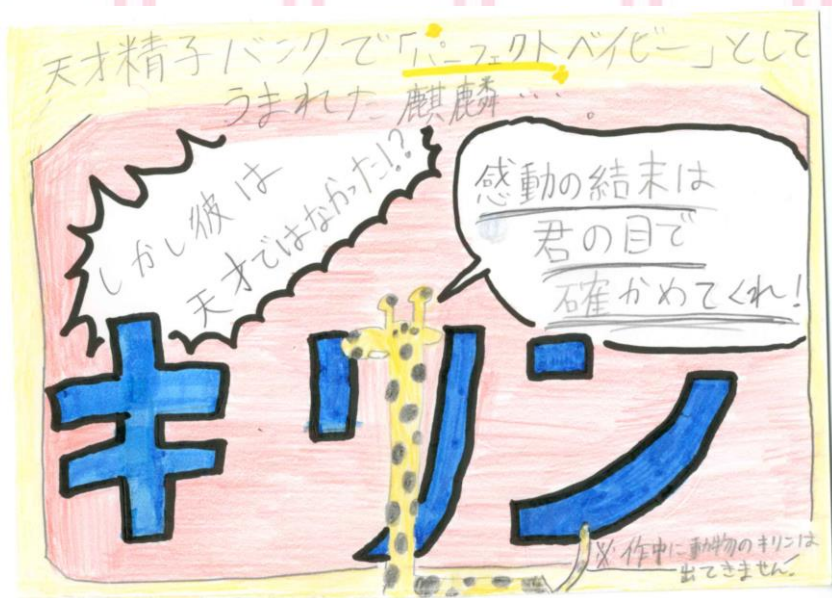 天才精子バンクで「パーフェクトベイビー」として
うまれた麒麟…。
しかし彼は
天才ではなかった!?
感動の結末は
君の目で
確かめてくれ!
キリン
※作中に動物のキリンは
出てきません。